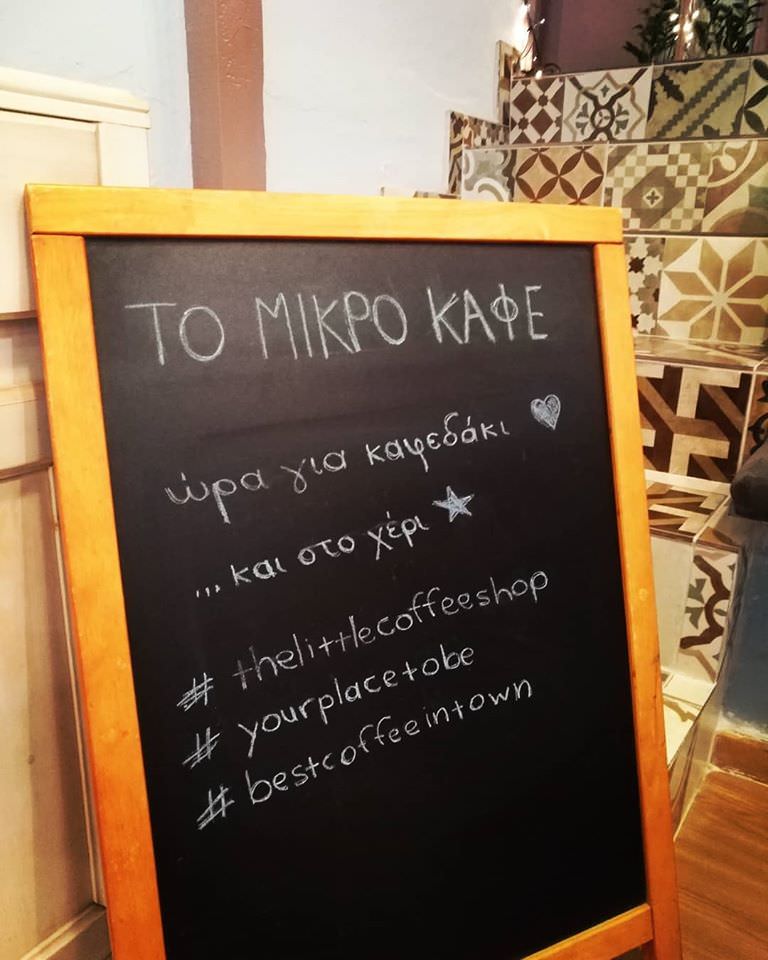 ΤΟ ΜΙΚΡΟ ΚΑΦΕ
ώρα για καφεδάκι
... και στο χέρι
# thelittlecoffeeshop
# yourplacetobe
# bestcoffeeintown